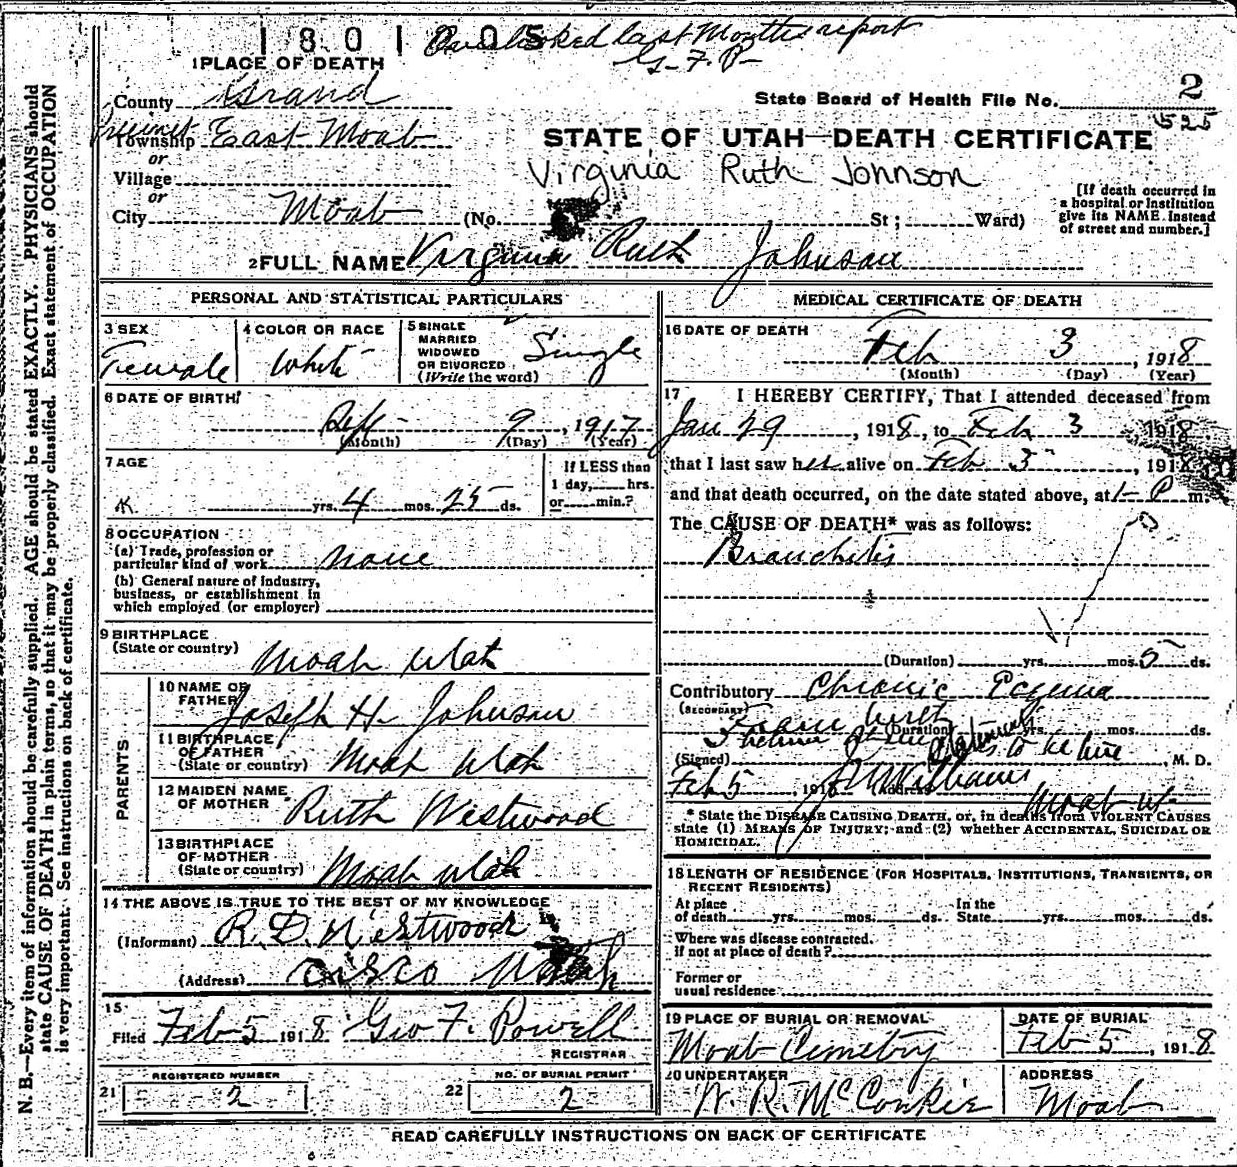 1801005
Overlooked last Months report
G. F. P.
1 PLACE OF DEATH
County Grand
State Board of Health File No. 2
525
Precinct
Township East Moab
STATE OF UTAH—DEATH CERTIFICATE
or
Village
Virginia Ruth Johnson
or
City Moab (No. St; Ward)
[If death occurred in
a hospital or institution
give its NAME instead
of street and number.]
2 FULL NAME Virginia Ruth Johnson
PERSONAL AND STATISTICAL PARTICULARS
3 SEX
Female
4 COLOR OR RACE
White
5 SINGLE
MARRIED
WIDOWED
OR DIVORCED
(Write the word)
Single
6 DATE OF BIRTH
Sept 9, 1917
(Month) (Day) (Year)
7 AGE
yrs. 4 mos. 25 ds.
If LESS than
1 day, hrs.
or min.?
8 OCCUPATION
(a) Trade, profession or
particular kind of work none
(b) General nature of industry,
business, or establishment in
which employed (or employer)
9 BIRTHPLACE
(State or country) Moab Utah
PARENTS
10 NAME OF
FATHER Joseph H. Johnson
11 BIRTHPLACE
OF FATHER
(State or country) Moab Utah
12 MAIDEN NAME
OF MOTHER Ruth Westwood
13 BIRTHPLACE
OF MOTHER
(State or country) Moab Utah
14 THE ABOVE IS TRUE TO THE BEST OF MY KNOWLEDGE
(Informant) R. D. Westwood
(Address) Cisco Utah
15
Filed Feb 5 1918 Geo F. Powell
REGISTRAR
REGISTERED NUMBER
21 2
NO. OF BURIAL PERMIT
22 2
MEDICAL CERTIFICATE OF DEATH
16 DATE OF DEATH
Feb 3, 1918
(Month) (Day) (Year)
17 I HEREBY CERTIFY, That I attended deceased from
Jan 29, 1918, to Feb 3 1918
that I last saw her alive on Feb 3, 1918
and that death occurred, on the date stated above, at 1 P m.
The CAUSE OF DEATH* was as follows:
Bronchitis
(Duration) yrs. mos. 5 ds.
Contributory Chronic Eczema
(SECONDARY)
(Duration) yrs. mos. ds.
statements to be true
(Signed) J. W. Williams, M. D.
Feb 5, 1918 Address Moab Ut.
* State the DISEASE CAUSING DEATH, or, in deaths from VIOLENT CAUSES
state (1) MEANS OF INJURY; and (2) whether ACCIDENTAL, SUICIDAL OR
HOMICIDAL.
18 LENGTH OF RESIDENCE (FOR HOSPITALS, INSTITUTIONS, TRANSIENTS, OR
RECENT RESIDENTS)
At place
of death yrs. mos. ds.
In the
State yrs. mos. ds.
Where was disease contracted.
if not at place of death?
Former or
usual residence
19 PLACE OF BURIAL OR REMOVAL
Moab Cemetry
DATE OF BURIAL
Feb 5, 1918
20 UNDERTAKER
W. R. McConkie
ADDRESS
Moab
READ CAREFULLY INSTRUCTIONS ON BACK OF CERTIFICATE
N. B.—Every item of information should be carefully supplied. AGE should be stated EXACTLY. PHYSICIANS should
state CAUSE OF DEATH in plain terms, so that it may be properly classified. Exact statement of OCCUPATION
is very important. See instructions on back of certificate.